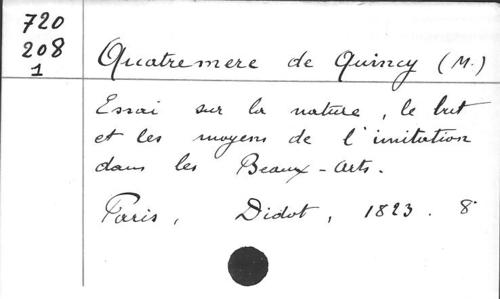 720
208
1
Quatremere de Quincy (M.)
Essai sur la nature, le but
et les moyens de l'imitation
dans les Beaux-Arts.
Paris, Didot, 1823. 8°